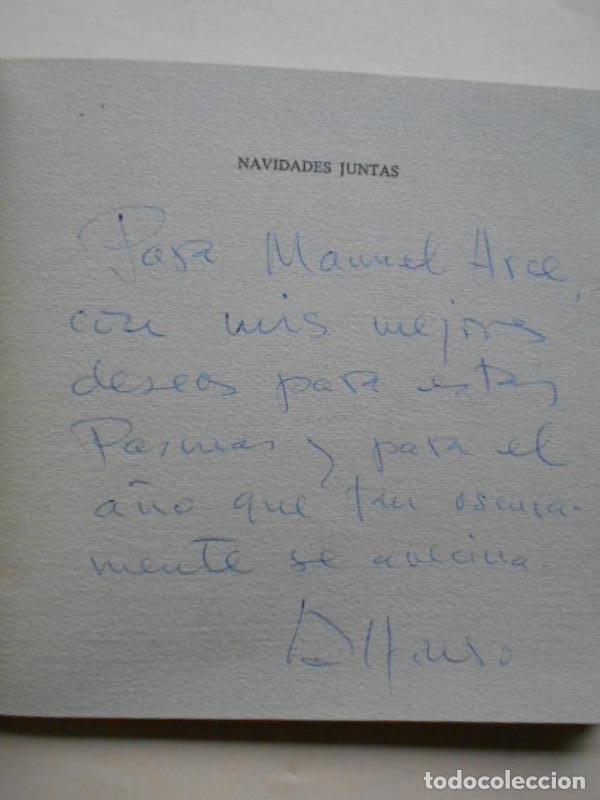 NAVIDADES JUNTAS
Para Manuel Arce,
con mis mejores
deseos para estas
Pascuas y para el
año que tan oscura-
mente se avecina.
Alfonso
todocoleccion